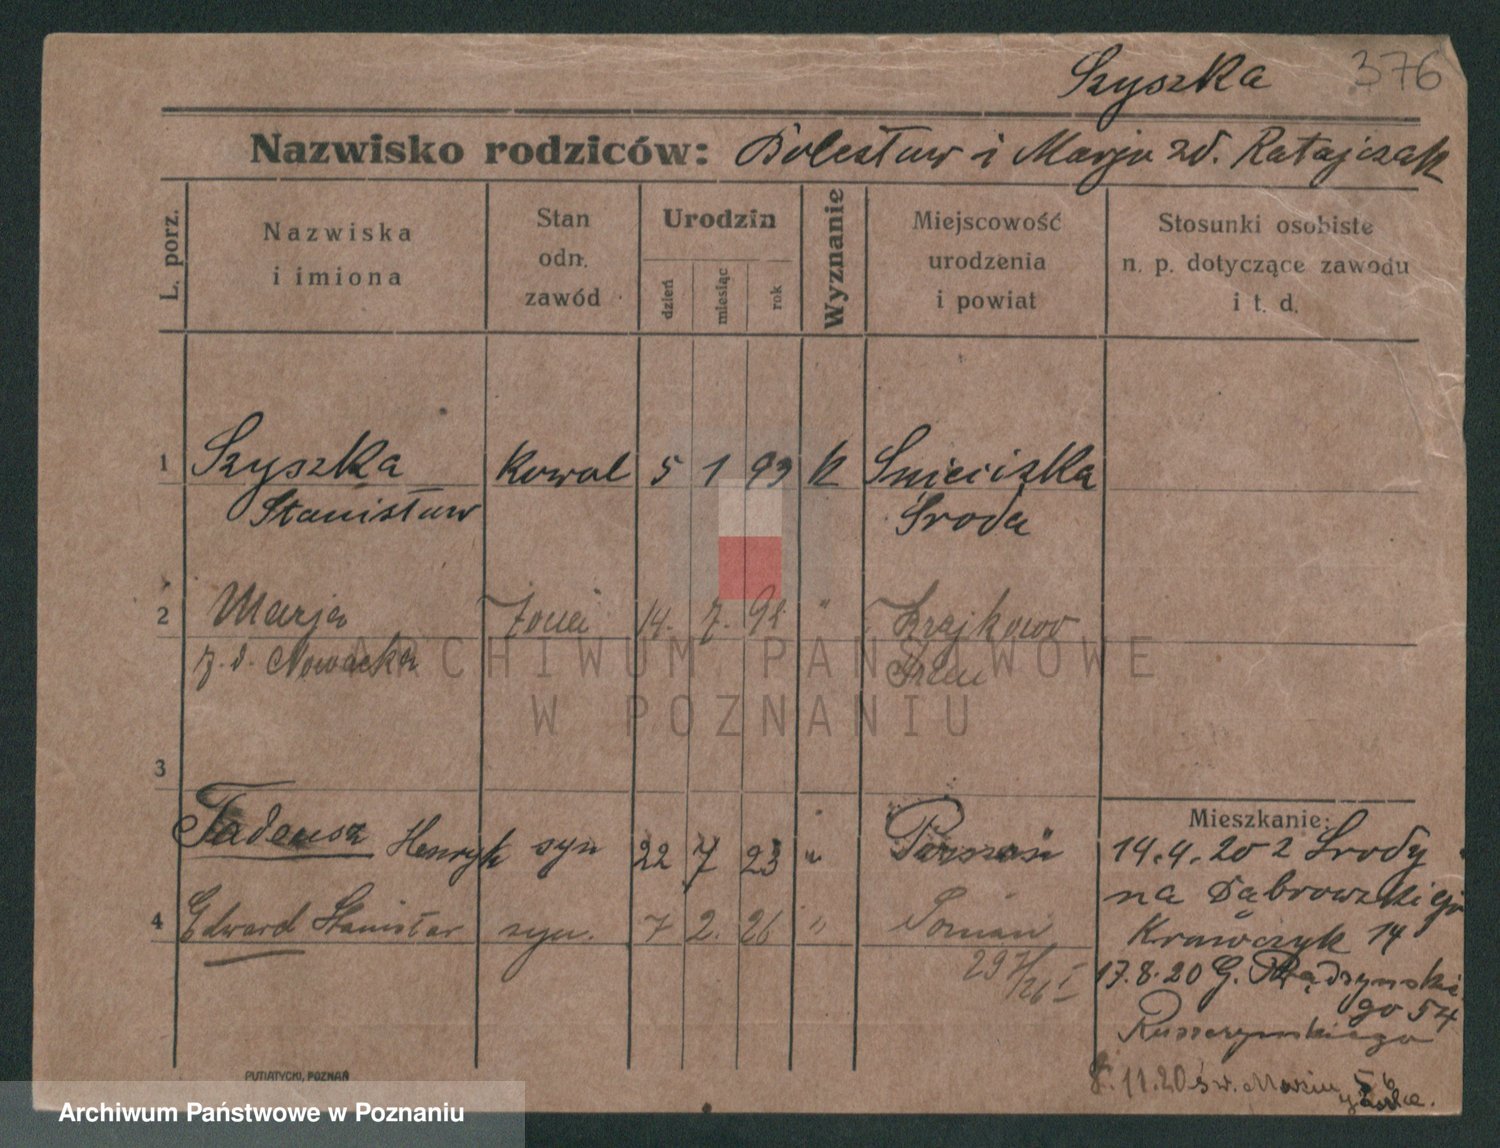 Szyszka 376
Nazwisko rodziców: Bolesław i Marja zd. Ratajczak
L. porz.
Nazwiska
i imiona
Stan
odn.
zawód
Urodzin
dzień
miesiąc
rok
Wyznanie
Miejscowość
urodzenia
i powiat
Stosunki osobiste
n. p. dotyczące zawodu
i t. d.
1 Szyszka Kowal 5 1 93 k Śnieciska
Stanisław Środa
2 Marja żona 14. 7. 98 " Krajkowo
z. d. Nowacka Śrem
ARCHIWUM PAŃSTWOWE
W POZNANIU
3
Tadeusz Henryk syn 22 7 23 " Poznań
4 Edward Stanisław syn. 7 2. 26 " Poznań
Mieszkanie:
14.4.20 z Środy
na Dąbrowskiego
Krawczyk 14
17.8.20 G. Prądzyńskie
go 54
8.11.20 św. Marcin 56
PUTIATYCKI, POZNAŃ
Archiwum Państwowe w Poznaniu